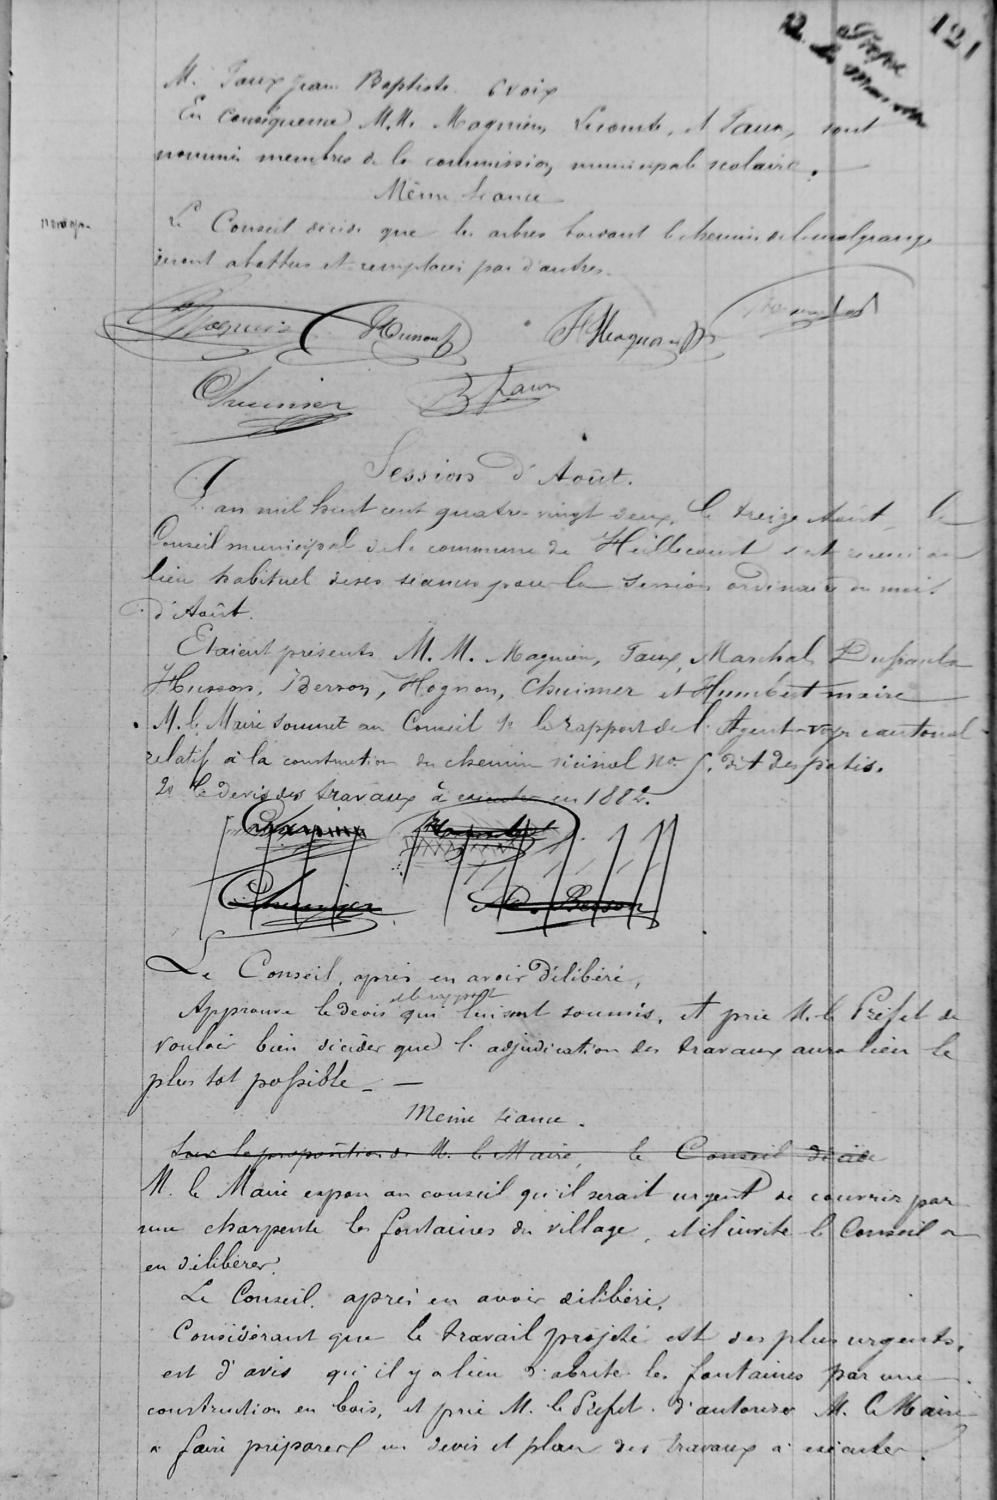 121
Préfre
M. Taux Jean Baptiste 6 voix
En conséquence M.M. Magnien, Lecomte, et Taux, sont
nommés membres de la commission municipale scolaire.
Même séance
Le Conseil décide que les arbres bordant le chemin de la malgrange
seront abattus et remplacés par d'autres.
Magnien Husson F Hognon Humbert
Chuimer B Taux
Session d'Août.
L'an mil huit cent quatre-vingt deux, le treize Août, le
Conseil municipal de la commune de Heillecourt s'est réuni au
lieu habituel de ses séances pour la session ordinaire du mois
d'Août.
Etaient présents M.M. Magnien, Taux, Marchal, Dufour
Husson, Berson, Hognon, Chuimer et Humbert maire
M. le Maire soumet au Conseil 1º le rapport de l'Agent-voyer cantonal
relatif à la construction du chemin vicinal No 5. dit des patis.
2º le devis des travaux à exécuter en 1882.
Humbert
Chuimer Berson
Le Conseil, après en avoir délibéré,
et le rapport
Approuve le devis qui lui sont soumis, et prie M. le Préfet de
vouloir bien décider que l'adjudication des travaux aura lieu le
plus tot possible
Même séance.
Sur la proposition de M. le Maire, le Conseil décide
M. le Maire expose au conseil qu'il serait urgent de couvrir par
une charpente les fontaines du village, et il invite le Conseil à
en délibérer.
Le Conseil, après en avoir délibéré,
Considérant que le travail projeté est des plus urgents,
est d'avis qu'il y a lieu d'abriter les fontaines par une
construction en bois, et prie M. le Préfet d'autoriser M. le Maire
à faire préparer un devis et plan des travaux à exécuter.